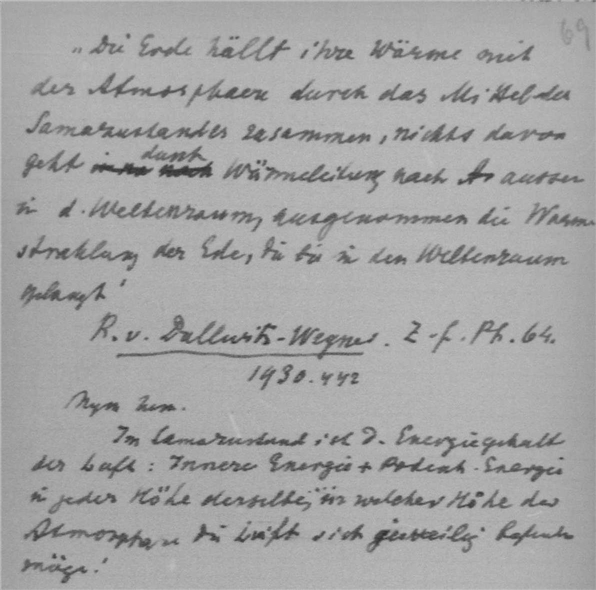 69
„Die Erde hällt ihre Wärme mit
der Atmosphaere durch das Mittel des
Samarzustandes zusammen, nichts davon
geht durch Wärmeleitung nach aussen
in d. Weltenraum, ausgenommen die Wärme-
strahlung der Erde, die bis in den Weltenraum
gelangt"
R. v. Dallwitz-Wegner. Z-f. Ph. 64.
1930. 442
Im Samarzustand ist d. Energiegehalt
der Luft: Innere Energie + Potent. Energie
in jeder Höhe derselbe, in welcher Höhe der
Atmosphäre die Luft sich jeweilig befinden
möge!